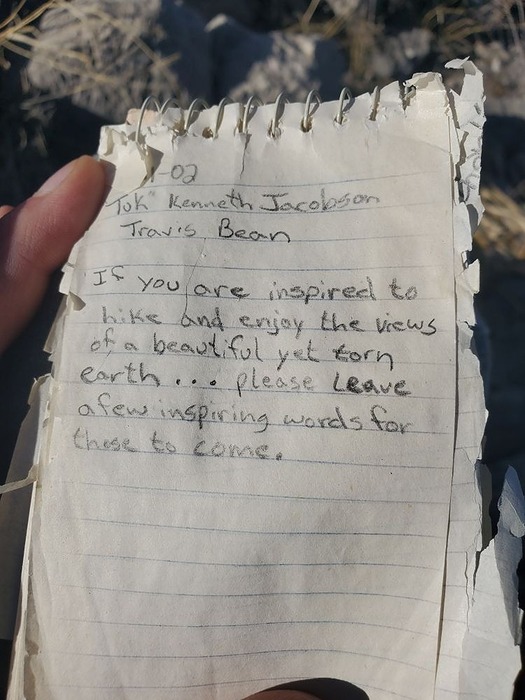 -02
"Tuk" Kenneth Jacobson
Travis Bean
If you are inspired to
hike and enjoy the views
of a beautiful yet torn
earth... please Leave
a few inspiring words for
those to come.